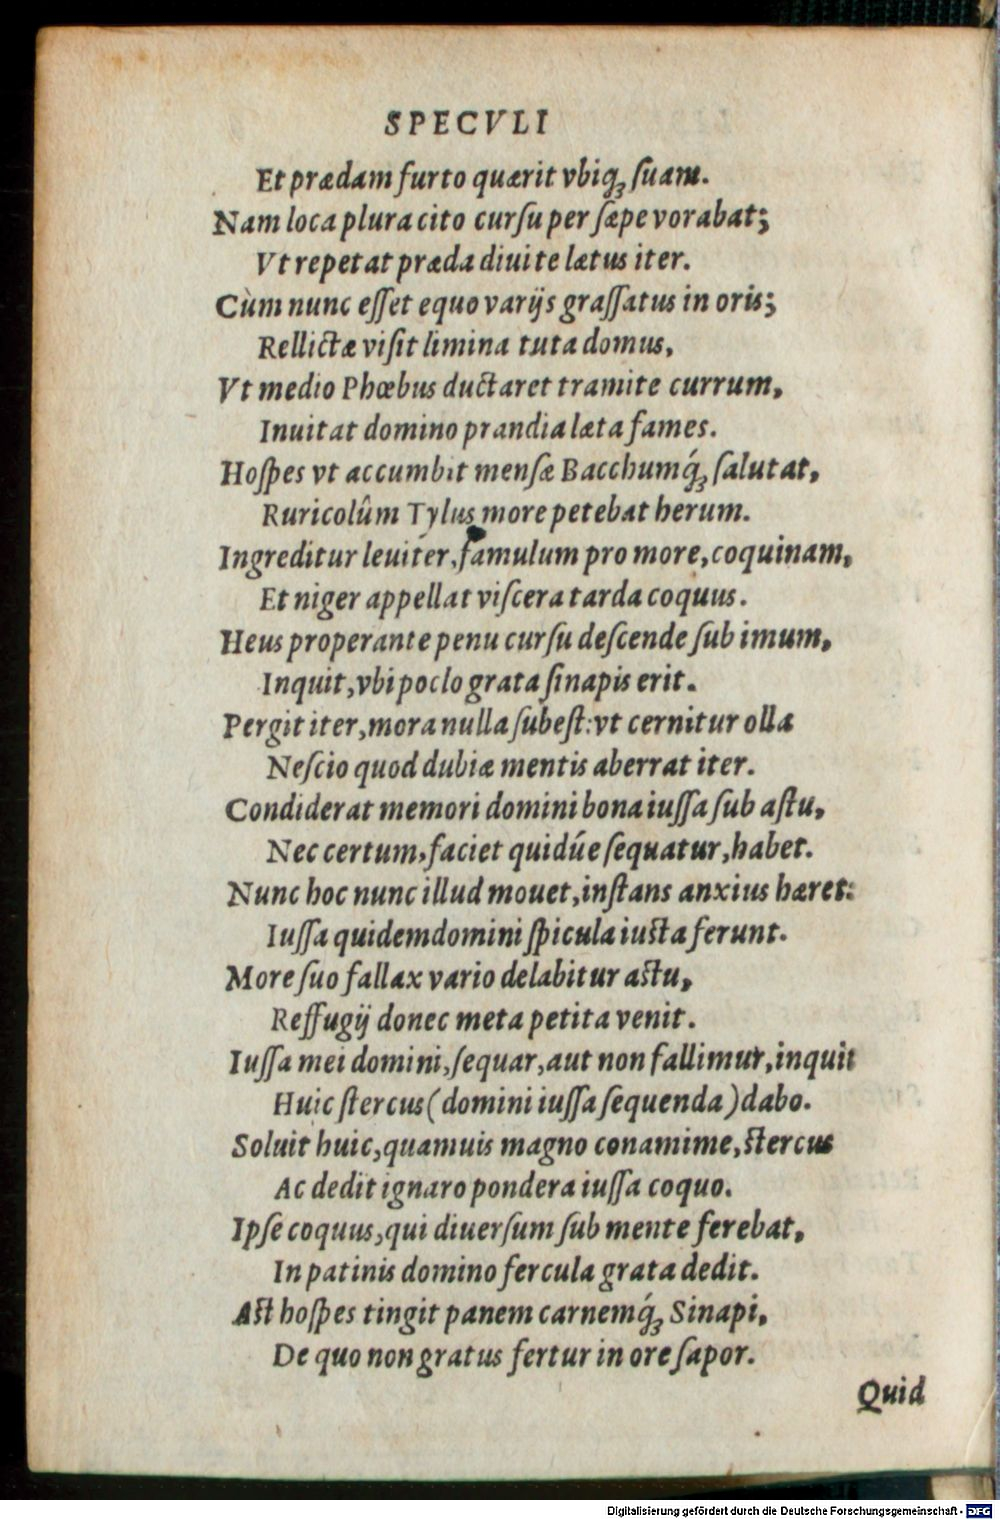 SPECVLI
Et prædam furto quærit vbiq́ꝫ suam.
Nam loca plura cito cursu per sæpe vorabat;
Vt repetat præda diuite lætus iter.
Cùm nunc esset equo varijs grassatus in oris;
Rellictæ visit limina tuta domus,
Vt medio Phœbus ductaret tramite currum,
Inuitat domino prandia læta fames.
Hospes vt accumbit mensæ Bacchumq́ꝫ salutat,
Ruricolûm Tylus more petebat herum.
Ingreditur leuiter, famulum pro more, coquinam,
Et niger appellat viscera tarda coquus.
Heus properante penu cursu descende sub imum,
Inquit, vbi poclo grata sinapis erit.
Pergit iter, mora nulla subest: vt cernitur olla
Nescio quod dubiæ mentis aberrat iter.
Condiderat memori domini bona iussa sub astu,
Nec certum, faciet quidúe sequatur, habet.
Nunc hoc nunc illud mouet, instans anxius hæret:
Iussa quidem domini spicula iusta ferunt.
More suo fallax vario delabitur actu,
Reffugij donec meta petita venit.
Iussa mei domini, sequar, aut non fallimur, inquit
Huic stercus (domini iussa sequenda) dabo.
Soluit huic, quamuis magno conamime, stercus
Ac dedit ignaro pondera iussa coquo.
Ipse coquus, qui diuersum sub mente ferebat,
In patinis domino fercula grata dedit.
Ast hospes tingit panem carnemq́ꝫ Sinapi,
De quo non gratus fertur in ore sapor.
Quid
Digitalisierung gefördert durch die Deutsche Forschungsgemeinschaft - DFG